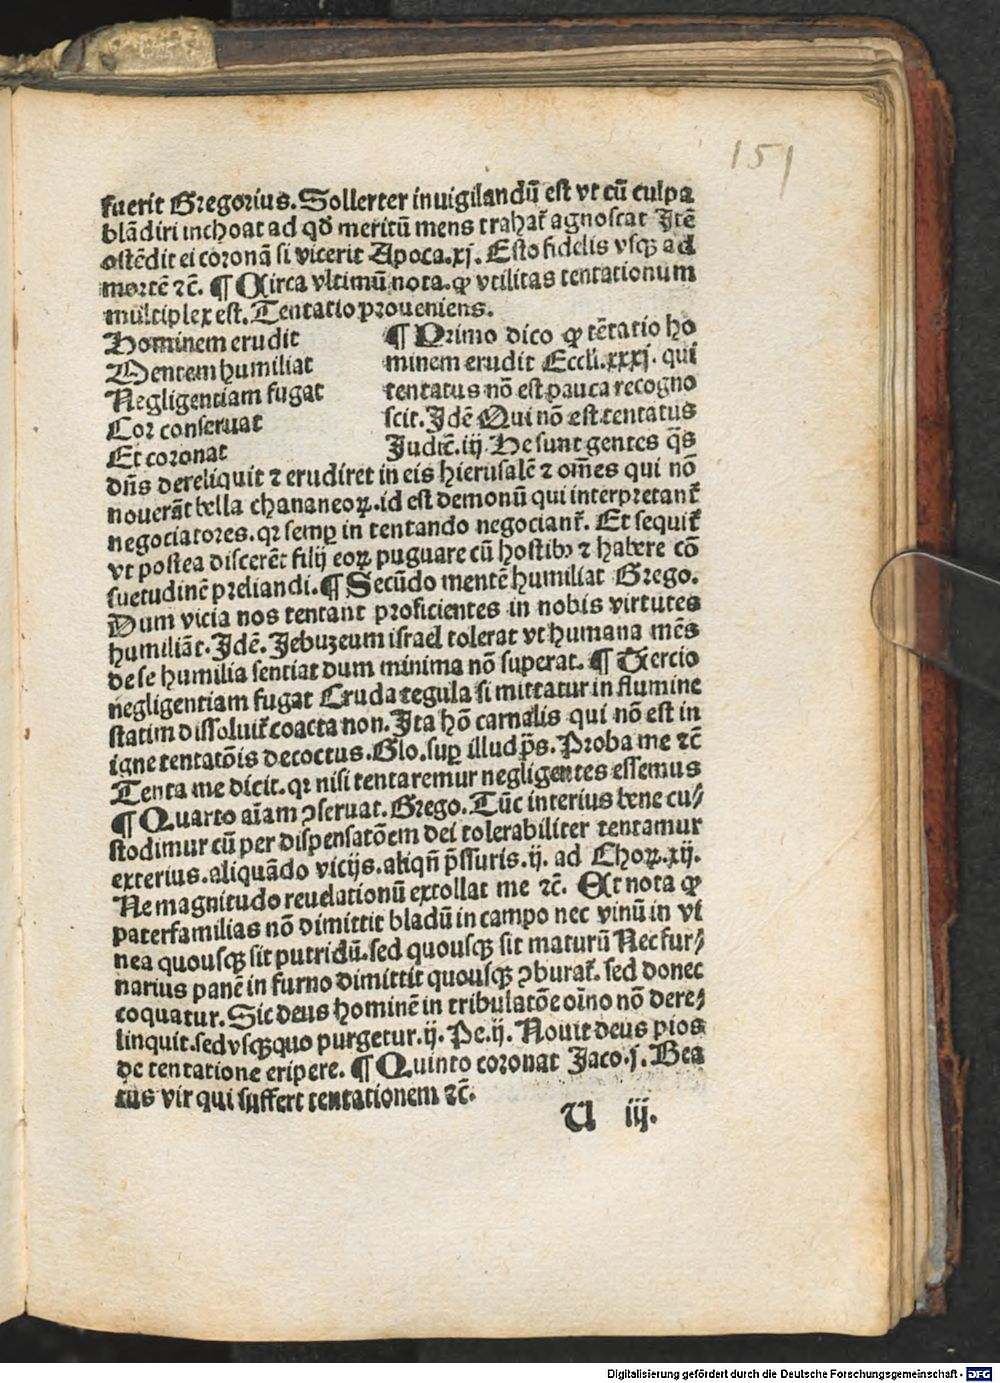 151
fuerit Gregorius. Sollerter inuigilandū est vt cū culpa
blādiri inchoat ad qđ meritū mens trahat̃ agnoscat Itē
ostēdit ei coronā si vicerit Apoca.xj. Esto fidelis vsqꝫ ad
mortē ⁊c̄. ¶ Circa vltimū nota. ꝙ vtilitas tentationum
multiplex est. Tentatio proueniens.
Hominem erudit
Mentem humiliat
Negligentiam fugat
Cor conseruat
Et coronat
¶ Primo dico ꝙ tētatio ho
minem erudit Eccli.xxxj. qui
tentatus nō est pauca recogno
scit. Idē Qui nō est tentatus
Judic̄.iij He sunt gentes q̄s
dn̄s dereliquit ⁊ erudiret in eis hierusalē ⁊ om̄es qui nō
nouerāt bella chananeoꝝ. id est demonū qui interpretant̃
negociatores. qꝛ semꝑ in tentando negociant̃. Et sequit̃
vt postea discerēt filij eoꝝ puguare cū hostibꝫ ⁊ habere cō
suetudinē preliandi. ¶ Secūdo mentē humiliat Grego.
Dum vicia nos tentant proficientes in nobis virtutes
humiliāt. Idē. Jebuzeum israel tolerat vt humana mēs
de se humilia sentiat dum minima nō superat. ¶ Tercio
negligentiam fugat Cruda tegula si mittatur in flumine
statim dissoluit̃ coacta non. Ita hō carnalis qui nō est in
igne tentatōis decoctus. Glo. suꝑ illud p̄s. Proba me ⁊c̄
Tenta me dicit. qꝛ nisi tentaremur negligentes essemus
¶ Quarto aīam ꝯseruat. Grego. Tūc interius bene cu⸗
stodimur cū per dispensatōem dei tolerabiliter tentamur
exterius. aliquādo vicijs. aliqn̄ p̄ssuris. ij. ad Choꝝ.xij.
Ne magnitudo reuelationū extollat me ⁊c̄. Et nota ꝙ
paterfamilias nō dimittit bladū in campo nec vinū in vi
nea quousqꝫ sit putridū. sed quousqꝫ sit maturū Nec fur⸗
narius panē in furno dimittit quousqꝫ ꝯburat̃. sed donec
coquatur. Sic deus hominē in tribulatōe oīno nō dere⸗
linquit. sed vsqꝫquo purgetur. ij. Pe.ij. Nouit deus pios
de tentatione eripere. ¶ Quinto coronat Jaco.j. Bea
tus vir qui suffert tentationem ⁊c̄.
U iij.
Digitalisierung gefördert durch die Deutsche Forschungsgemeinschaft - DFG